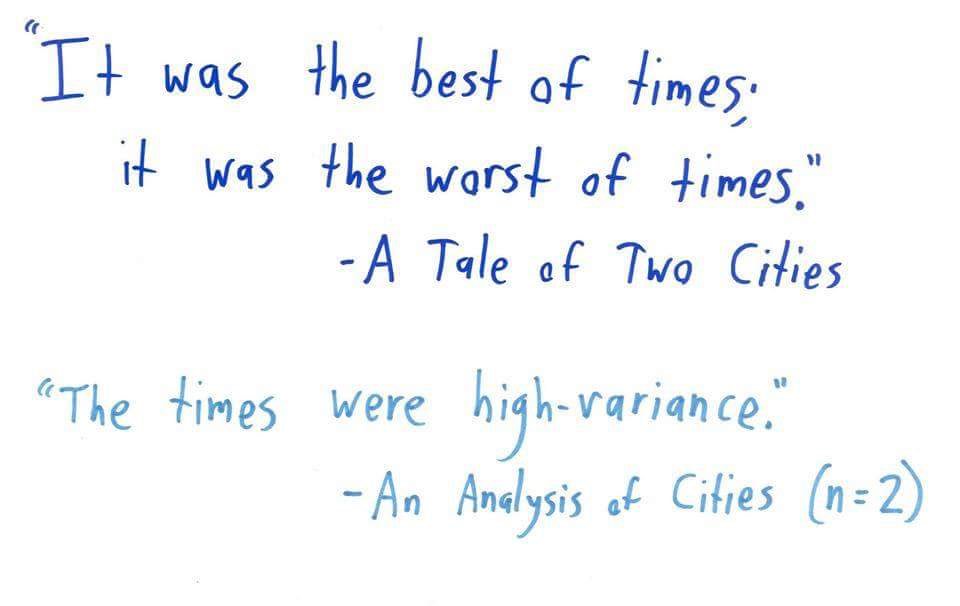 "It was the best of times;
it was the worst of times."
-A Tale of Two Cities
"The times were high-variance."
-An Analysis of Cities (n=2)